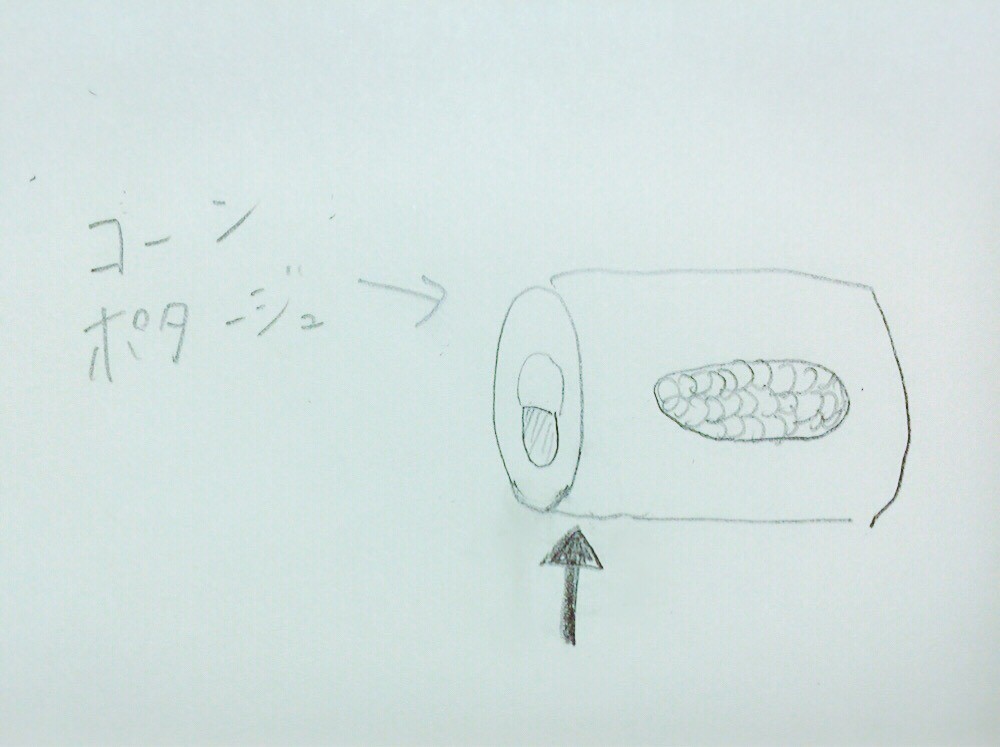 コーン
ポタージュ